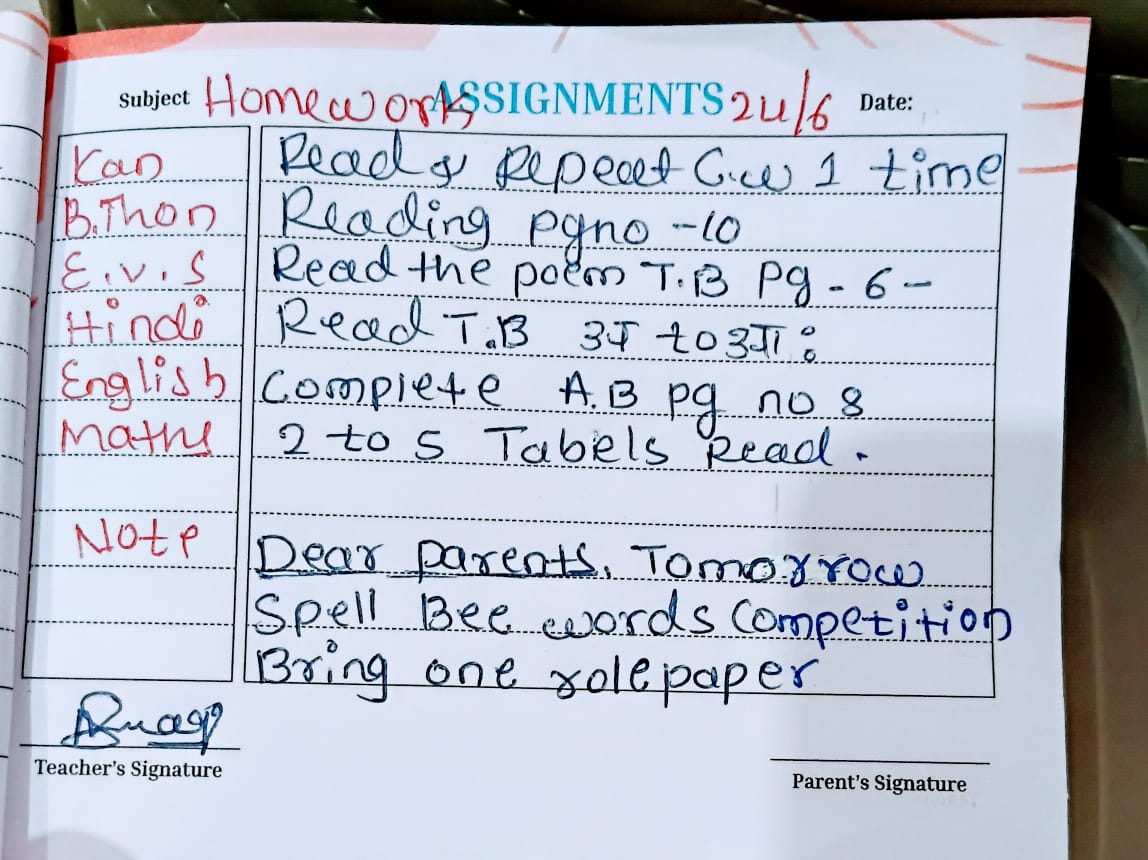 Subject Homework ASSIGNMENTS 24/6 Date:
Kan Read & Repeat C.w 1 time
B.Thon Reading pgno -10
E.v.S Read the poem T.B Pg - 6 -
Hindi Read T.B अ to अः
English Complete A.B pg no 8
Maths 2 to 5 Tabels Read.
Note Dear parents, Tomorrow
Spell Bee words Competition
Bring one role paper
Teacher's Signature
Parent's Signature